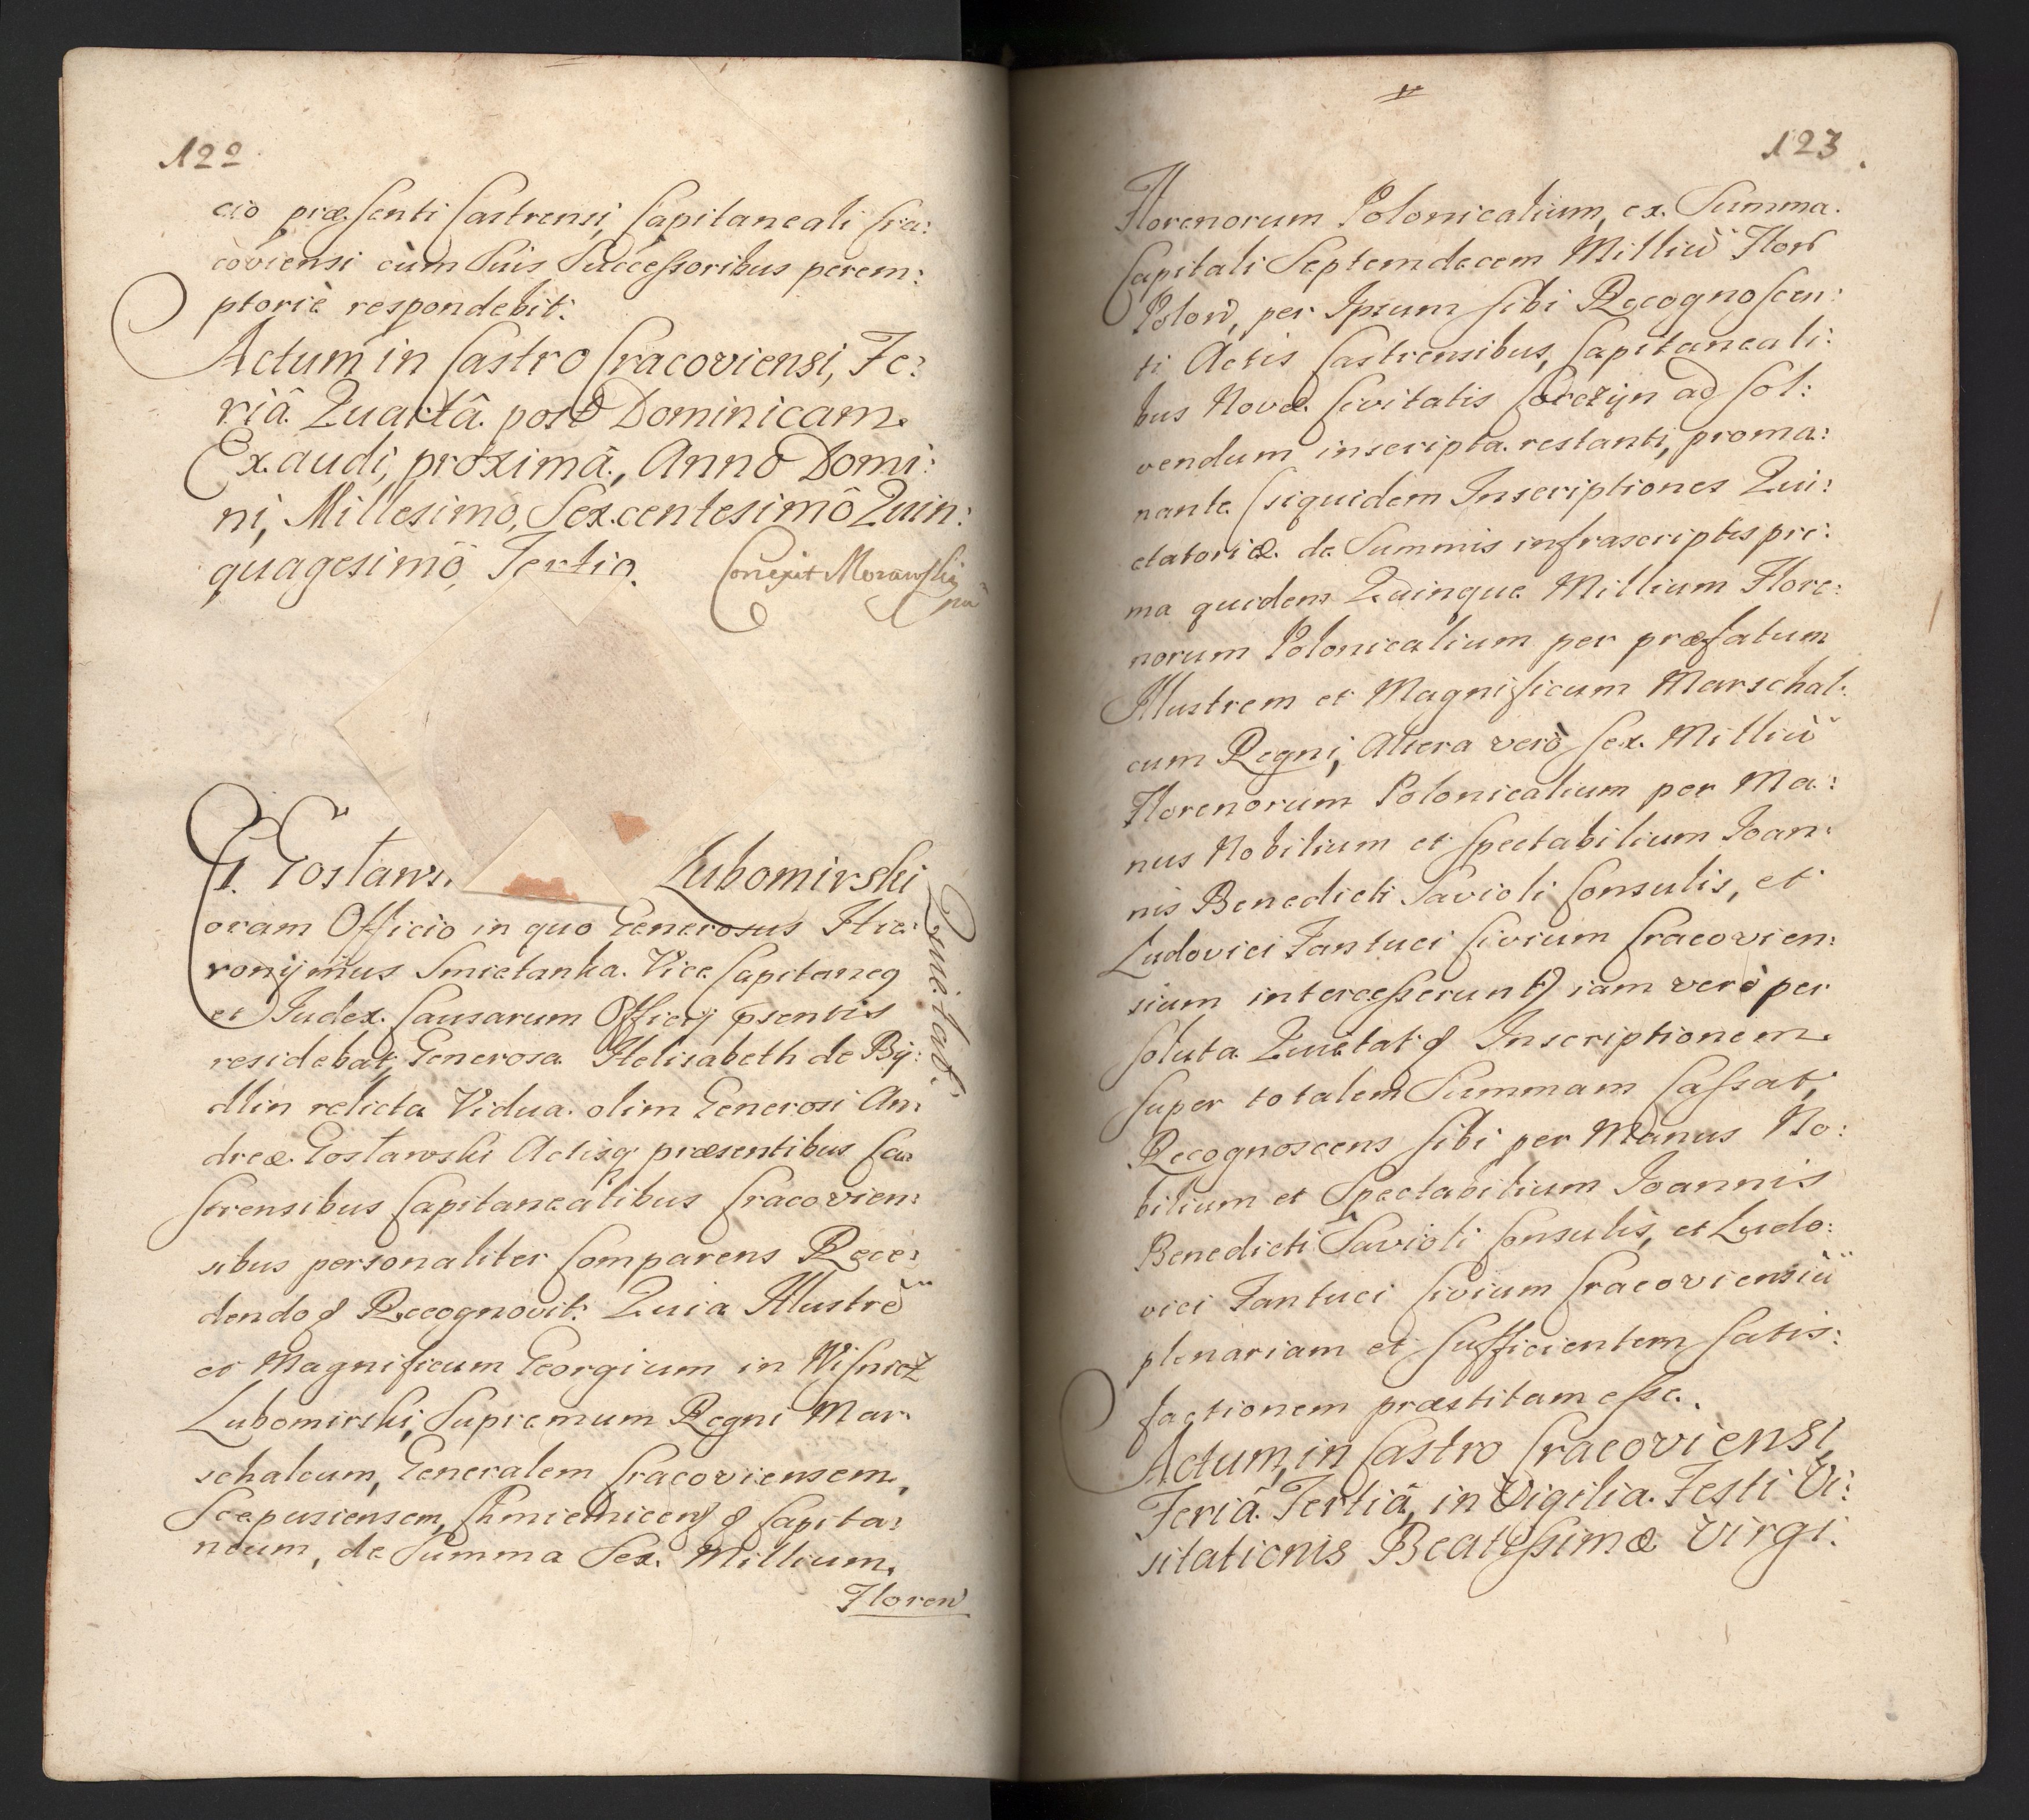 122
cio præsenti Castrensi, Capitaneali Cra:
coviensi cùm Suis Successoribus perem:
ptoriè respondebit.
Actum in Castro Cracoviensi, Fe:
riâ Quartâ post Dominicam
Exaudi, proximâ, Anno Domi:
ni, Millesimô, Sexcentesimô Quin:
quagesimô, Tertio.
Correxit Morawski
Gosławs. Lubomirski
Quietat.
oram Officio in quo Generosus Hie:
ronijmus Smietanka Vice Capitaneg
et Judex Causarum Officij psentis
residebat, Generosa Helisabeth de Bij:
dlin relicta Vidua olim Generosi An:
dreæ Gosławski Actisq præsentibus Ca:
strensibus Capitanealibus Cracovien:
sibus personaliter Comparens Rece:
dendo Recognovit: Quia Illustrè
et Magnificum Georgium in Wisnicz
Lubomirski, Supremum Regni Mar:
schalcum, Generalem Cracoviensem,
Scepusiensem, Chmielnicen Capita:
neum, de Summa Sex Millium
Floren
123
Florenorum Polonicalium, ex Summa
Capitali Septemdecem Milliũ Flor
Polon, per Ipsum sibi Recognoscen:
ti Actis Castrensibus, Capitaneali:
bus Novæ Civitatis Corczyn ad Sol:
vendum inscripta restanti, proma:
nante (siquidem Inscriptiones Qui:
etatoriæ de Summis infrascriptis pri:
ma quidem Quinque Millium Flore:
norum Polonicalium per præfatum
Illustrem et Magnificum Marschal:
cum Regni, Altera verò Sex Milliũ
Florenorum Polonicalium per Ma:
nus Nobilium et Spectabilium Joan:
nis Benedicti Savioli Consulis, et
Ludovici Fantuci Civium Cracovien:
sium intercesserunt) iam verò per
soluta Quietat Inscriptionem
super totalem Summam Cassat,
Recognoscens sibi per Manus No:
bilium et Spectabilium Joannis
Benedicti Savioli Consulis, et Ludo:
vici Fantuci Civium Cracoviensiũ
plenariam et Sufficientem Satis:
factionem præstitam esse.
Actum, in Castro Cracoviensi,
Feriâ Tertiâ, in Vigilia Festi Vi:
sitationis Beatissimæ Virgi: